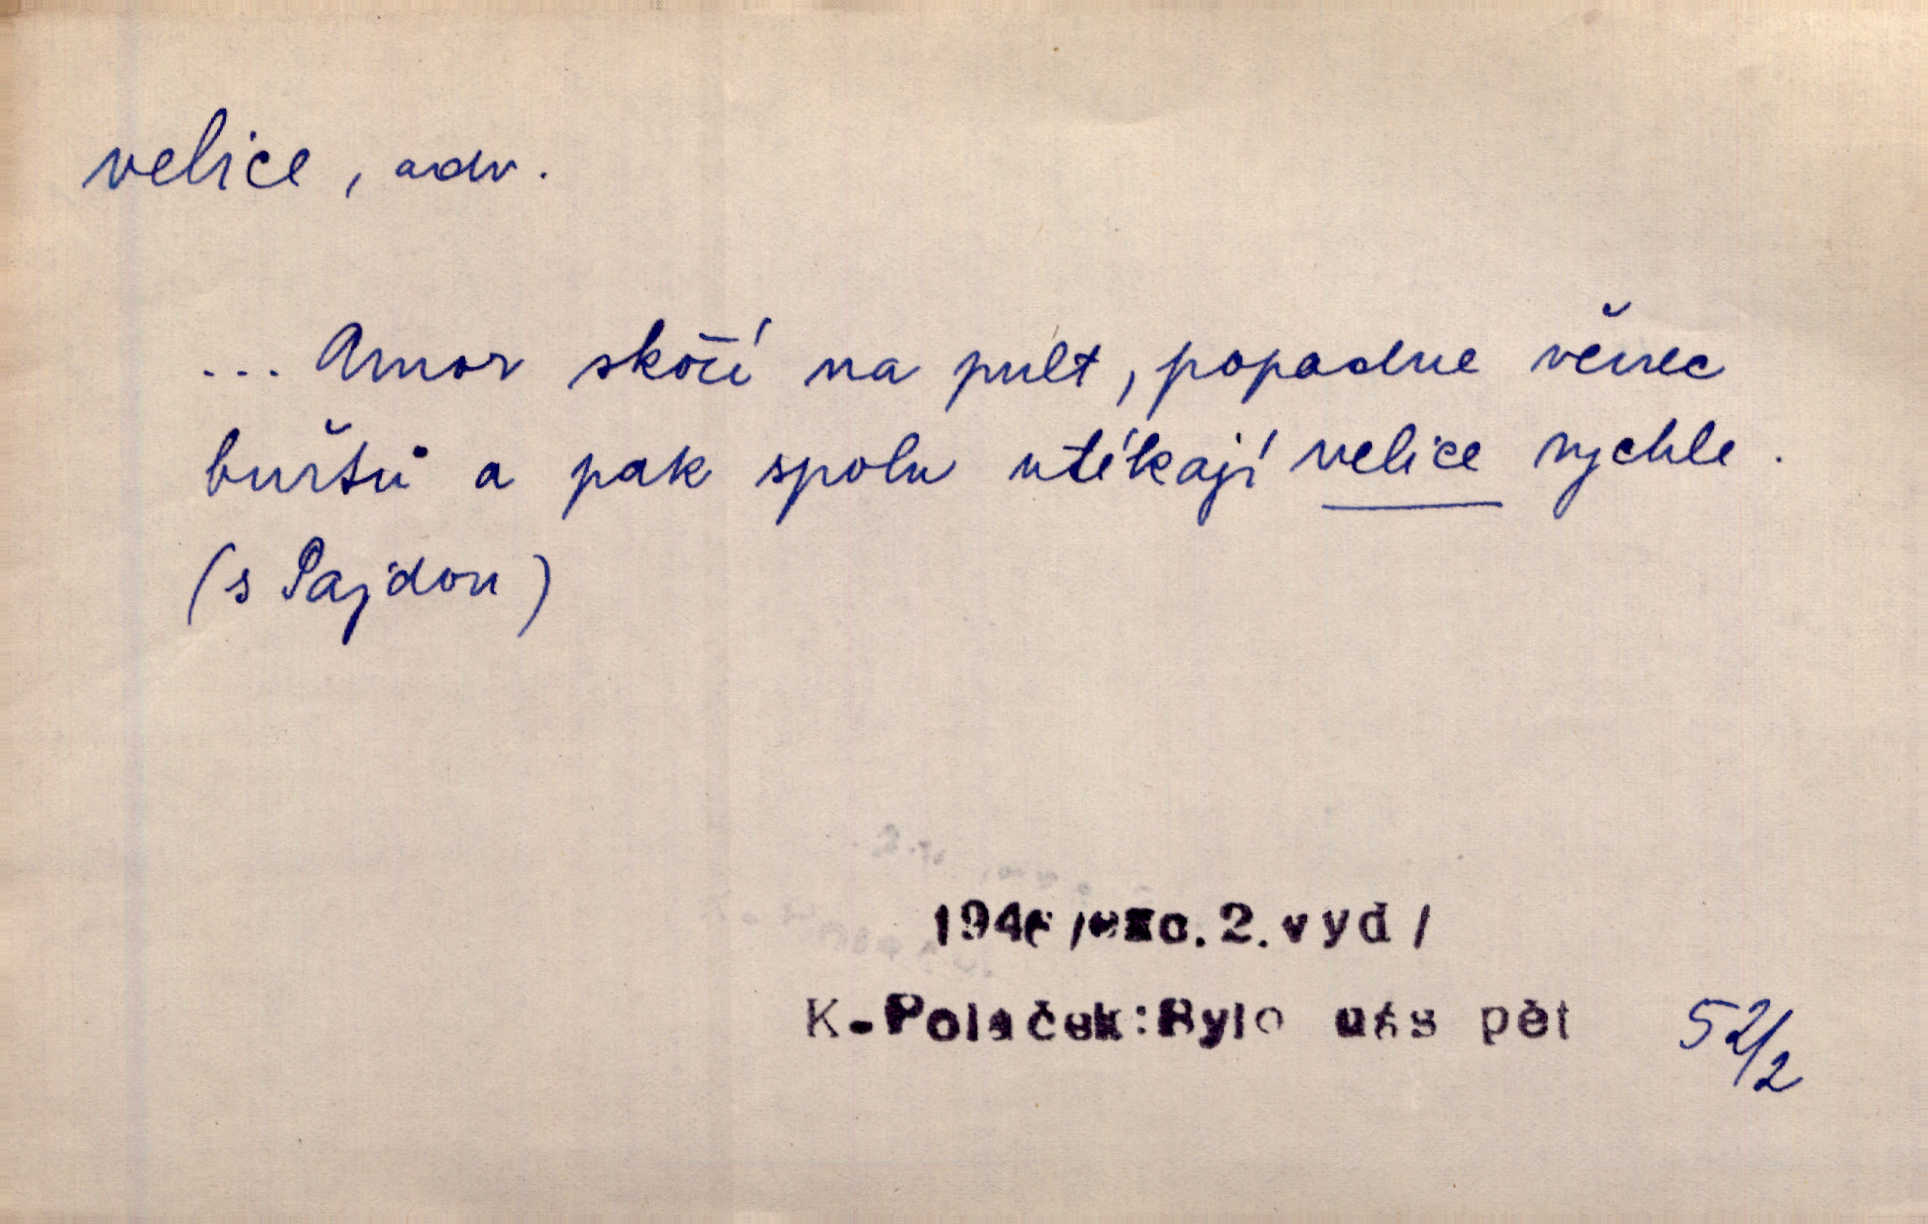 velice, adv.
... Amor skočí na pult, popadne věnec
buřtů a pak spolu utíkají velice rychle.
(s Pajdou)
1946 /exc. 2. vyd/
K. Poláček: Bylo nás pět 52/2